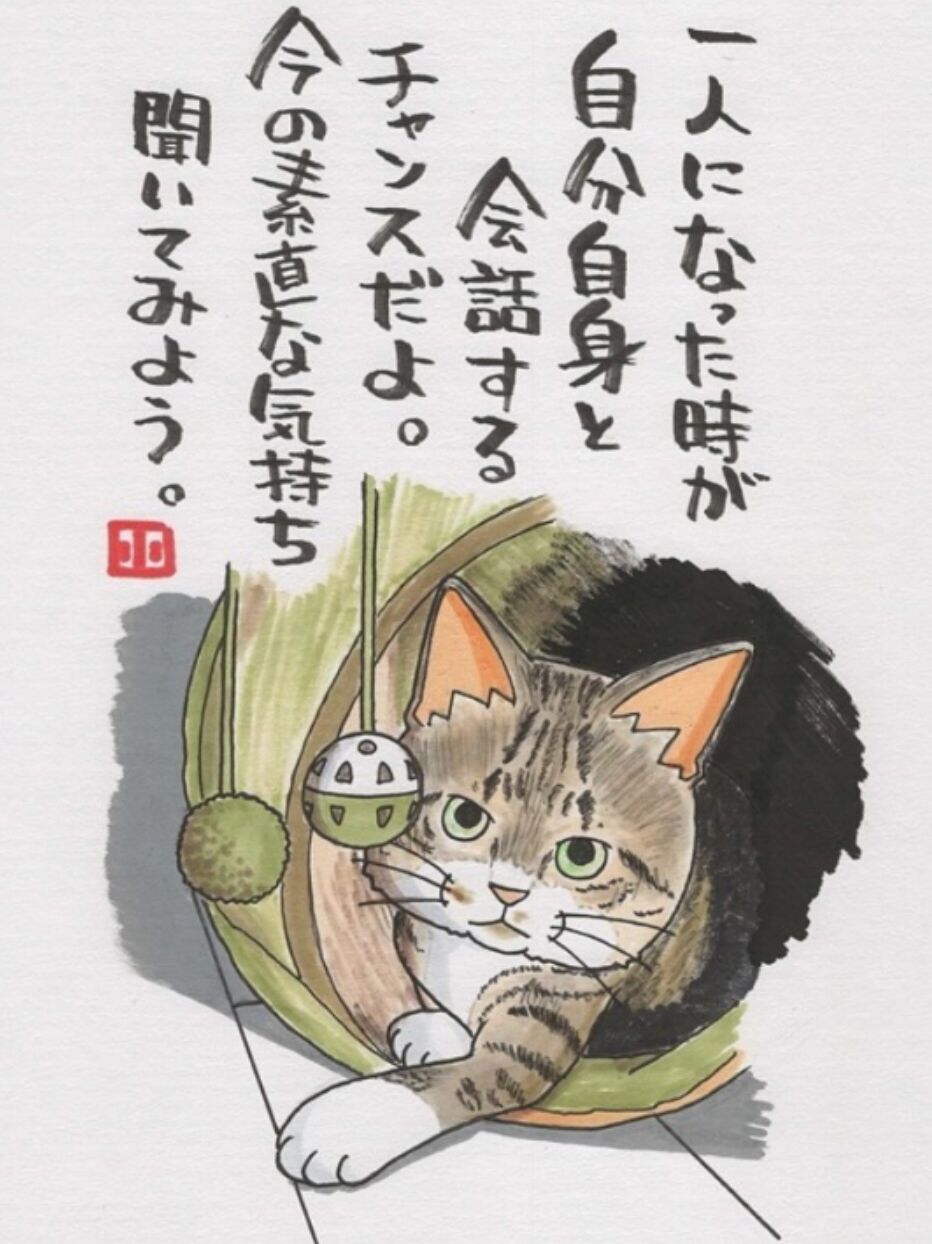 一人になった時が
自分自身と
会話する
チャンスだよ。
今の素直な気持ち
聞いてみよう。